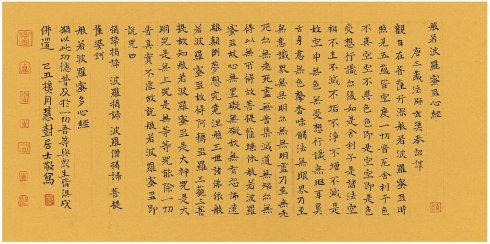 般若波羅蜜多心經
唐三藏法師玄奘奉詔譯
觀自在菩薩行深般若波羅蜜多時
照見五蘊皆空度一切苦厄舍利子色
不異空空不異色色即是空空即是色
受想行識亦復如是舍利子是諸法空
相不生不滅不垢不淨不增不減是
故空中無色無受想行識無眼耳鼻
舌身意無色聲香味觸法無眼界乃至
無意識界無無明亦無無明盡乃至無老
死亦無老死盡無苦集滅道無智亦無
得以無所得故菩提薩埵依般若波羅
蜜多故心無罣礙無罣礙故無有恐怖遠
離顛倒夢想究竟涅槃三世諸佛依般
若波羅蜜多故得阿耨多羅三藐三菩
提故知般若波羅蜜多是大神咒是大
明咒是無上咒是無等等咒能除一切
苦真實不虛故說般若波羅蜜多咒即
說咒曰
揭諦揭諦 波羅揭諦 波羅僧揭諦 菩提
薩婆訶
般若波羅蜜多心經
願以此功德普及於一切吾等與眾生皆共成
佛道 己丑 月慧 居士敬寫